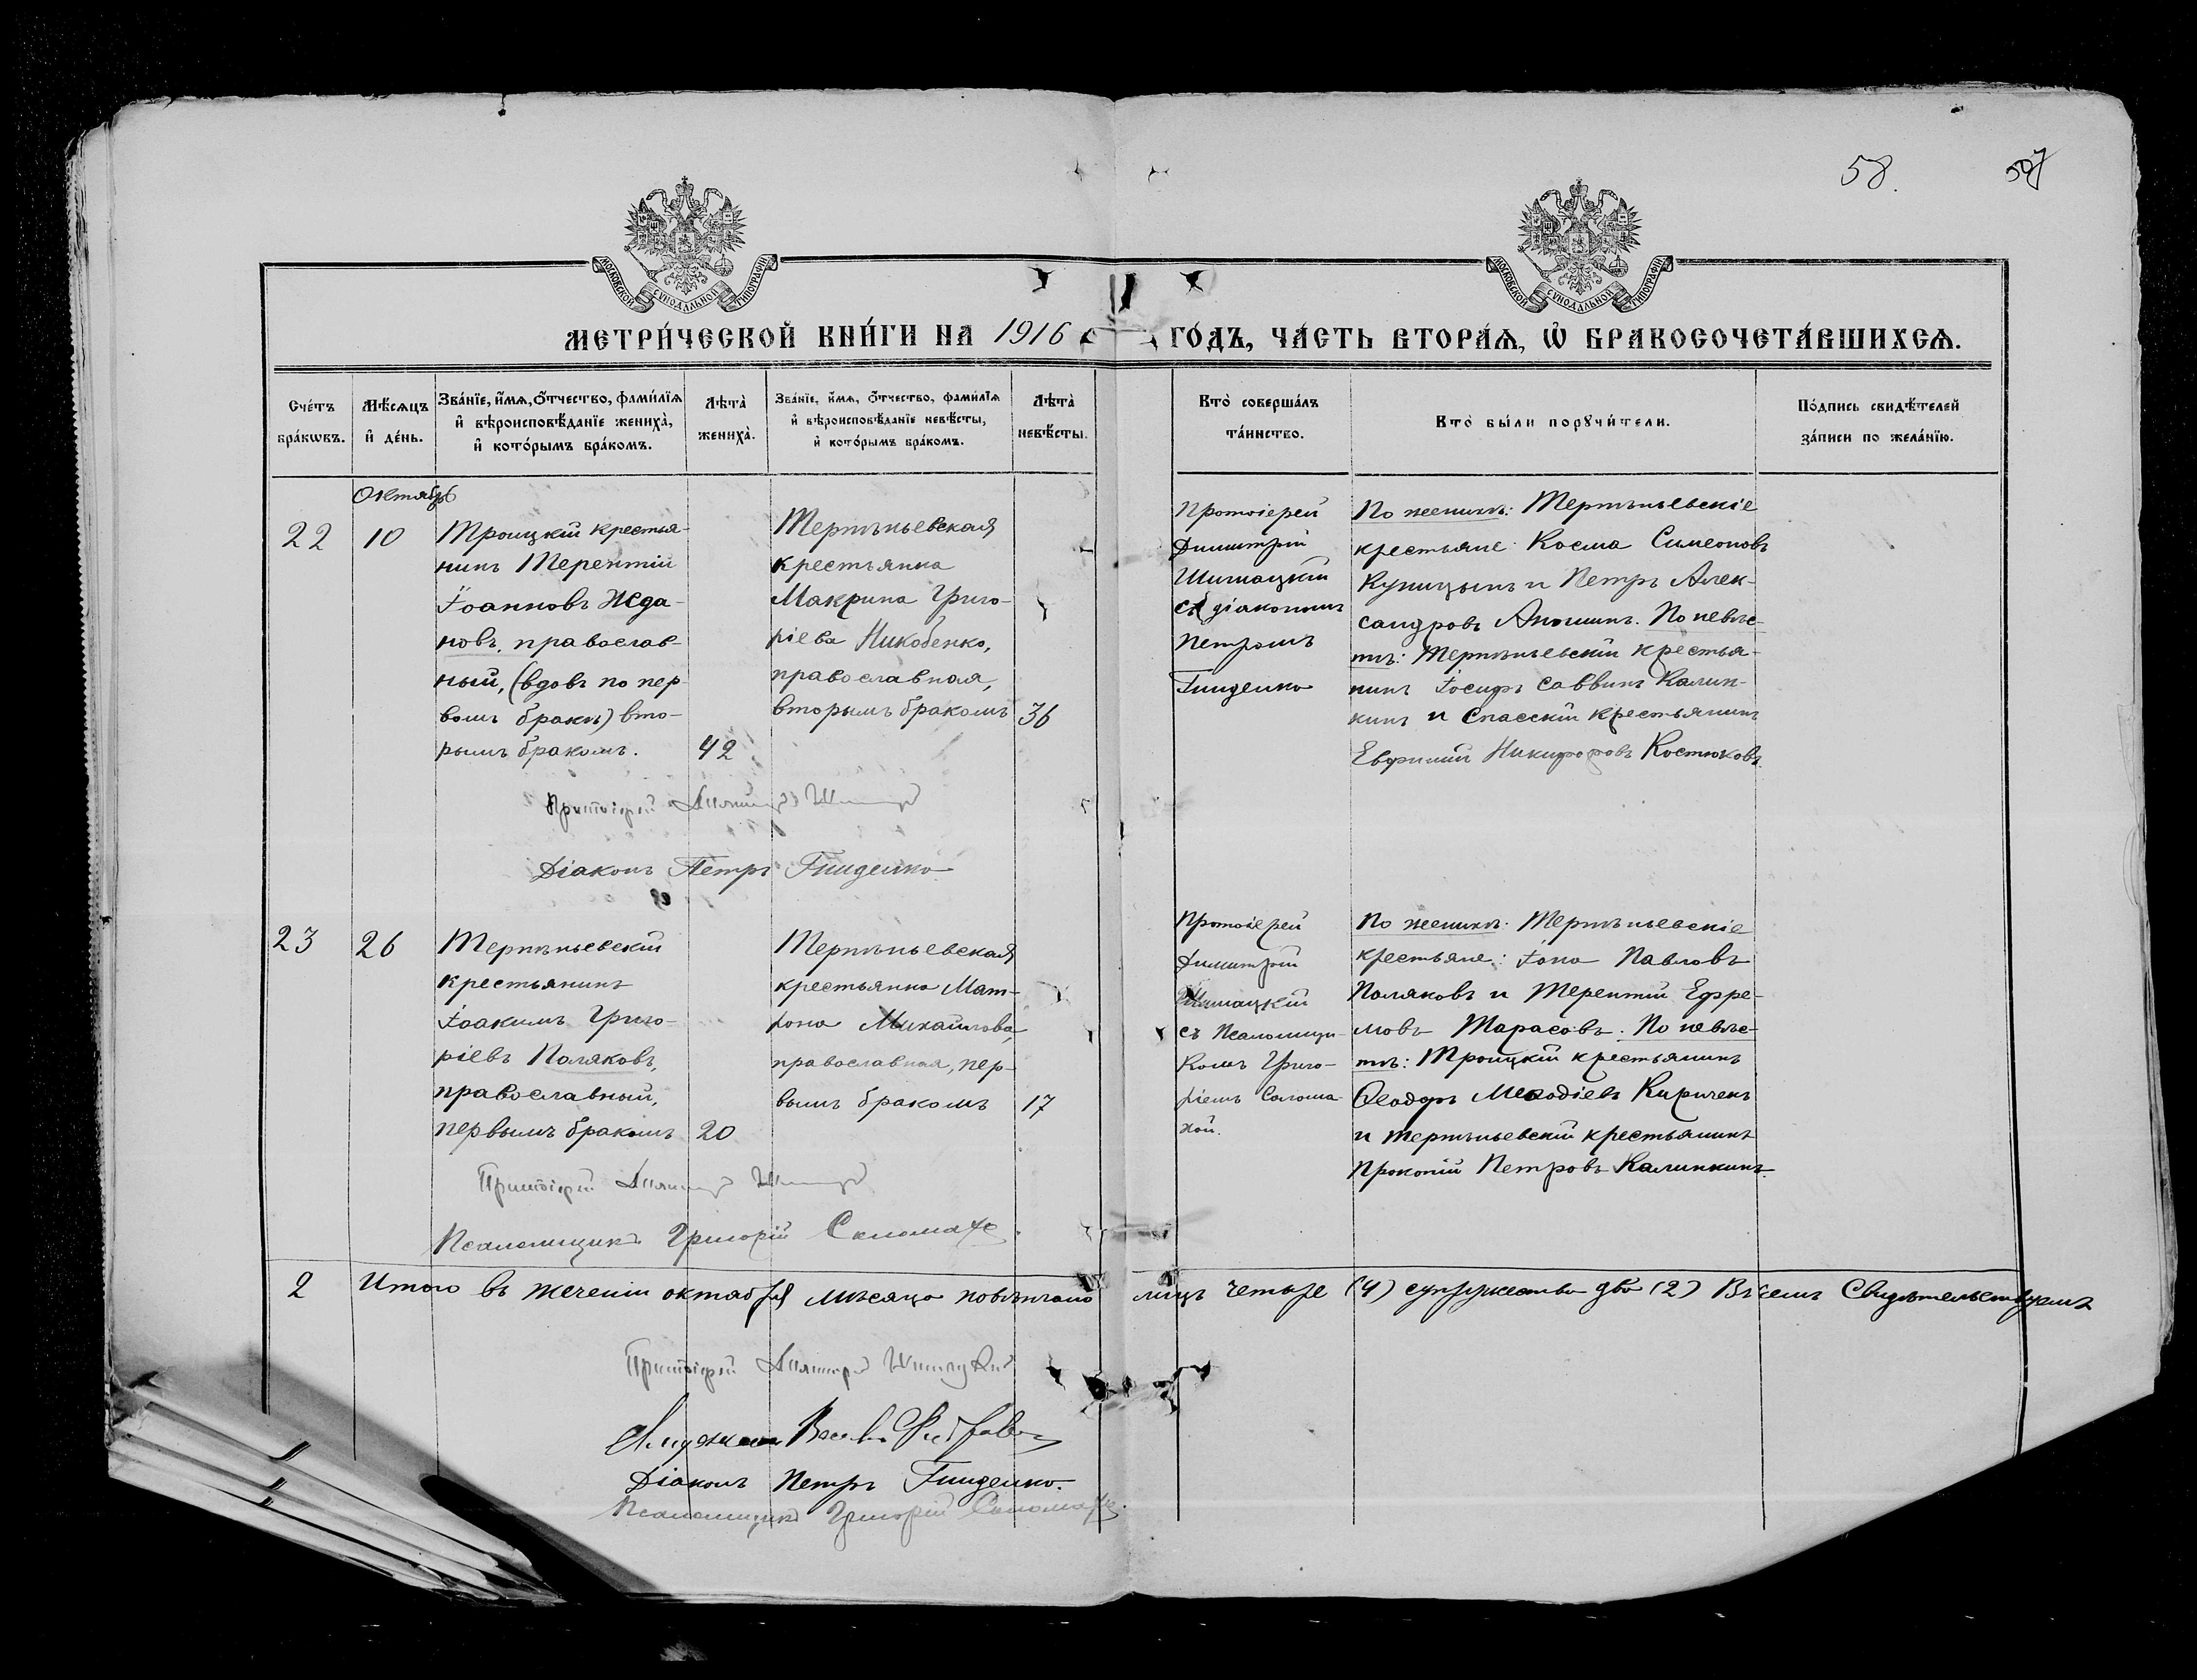 58.
МОСКОВСКОЙ СѴНОДАЛЬНОЙ ТИПОГРАФІИ
МОСКОВСКОЙ СѴНОДАЛЬНОЙ ТИПОГРАФІИ
МЕТРИ́ЧЕСКОЙ КНИ́ГИ НА 1916 ГО́ДЪ, ЧА́СТЬ ВТОРА́Ѧ, Ѽ БРАКОСОЧЕТА́ВШИХСѦ.
Сче́тъ бра́кѡвъ.
Мѣ́сѧцъ и҆ де́нь.
Зва́нїе, и҆́мѧ, ѻ҆́тчество, фами́лїѧ
и҆ вѣроисповѣ́данїе жениха̀,
и҆ кото́рымъ бра́комъ.
Лѣта̀ жениха̀.
Зва́нїе, и҆́мѧ, ѻ҆́тчество, фами́лїѧ
и҆ вѣроисповѣ́данїе невѣ́сты,
и҆ кото́рымъ бра́комъ.
Лѣта̀ невѣ́сты.
Кто̀ соверша́лъ
та́инство.
Кто̀ бы́ли порꙋчи́тели.
По́дпись свидѣ́телей
за́писи по жела́нїю.
Октябрь
22
10
Троицкій крестья-
нинъ Терентій
Іоанновъ Жда-
новъ, православ-
ный, (вдовъ по пер-
вомъ бракѣ) вто-
рымъ бракомъ.
42
Терпѣньевская
крестьянка
Макрина Григо-
ріева Никобенко,
православная,
вторымъ бракомъ
36
Протоіерей
Димитрій
Шимацкій
съ діакономъ
Петромъ
Гниденко
По женихѣ: Терпѣньевскіе
крестьяне Косма Симеоновъ
Куницынъ и Петръ Алек-
сандровъ Аношинъ. По невѣс-
тѣ: Терпѣньевскій крестья-
нинъ Іосифъ Саввинъ Калин-
кинъ и Спасскій крестьянинъ
Евфимій Никифоровъ Костюковъ.
Протоіерей Димитрій
Діаконъ Петръ Гниденко
23
26
Терпѣньевскій
крестьянинъ
Іоакимъ Григо-
ріевъ Поляковъ,
православный,
первымъ бракомъ
20
Терпѣньевская
крестьянка Мат-
рона Михайлова,
православная, пер-
вымъ бракомъ
17
Протоіерей
Димитрій
Шимацкій
съ псаломщи-
комъ Григо-
ріемъ Солома-
хой.
По женихѣ: Терпѣньевскіе
крестьяне: Іона Павловъ
Поляковъ и Терентій Ефре-
мовъ Тарасовъ. По невѣс-
тѣ: Троицкій крестьянинъ
Ѳеодоръ Меѳодіевъ Киричекъ
и терпѣньевскій крестьянинъ
Прокопій Петровъ Калинкинъ.
Протоіерей Димитрій
Псаломщикъ Григорій Соломаха.
2
Итого въ теченіи октября мѣсяца повѣнчано лицъ четыре (4) супружества два (2) Въ семъ Свидѣтельствуемъ
Протоіерей Димитрій Шимацкій
Діаконъ Петръ Гниденко.
Псаломщикъ Григорій Соломаха.